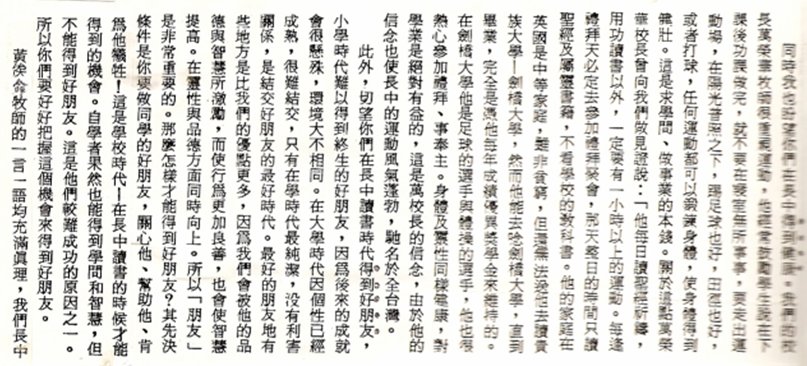 同時我也盼望你們在長中得到健康。我們的校
長萬榮華牧師很重視運動，他經常鼓勵學生說在下
課後功課做完，就不要在寢室無所事事，要走出運
動場，在陽光普照之下，踢足球也好，田徑也好，
或者打球，任何運動都可以鍛鍊身體，使身體得到
健壯。這是求學問、做事業的本錢。關於這點萬榮
華校長曾向我們做見證說：「他每日讀聖經祈禱，
用功讀書以外，一定要有一小時以上的運動。每逢
禮拜天必定去參加禮拜聚會，那天整日的時間只讀
聖經及屬靈書籍，不看學校的教科書。他的家庭在
英國是中等家庭，雖非貧窮，但還無法供他去讀貴
族大學—劍橋大學，然而他能去唸劍橋大學，直到
畢業，完全是憑他每年成績優異獎學金來維持的。
在劍橋大學他是足球的選手與體操的選手，他也很
熱心參加禮拜、事奉主。身體及靈性同樣健康，對
學業是絕對有益的，這是萬校長的信念，由於他的
信念也使長中的運動風氣蓬勃，馳名於全台灣。
此外，切望你們在長中讀書時代得到好朋友，
小學時代難以得到終生的好朋友，因為後來的成就
會很懸殊，環境大不相同。在大學時代因個性已經
成熟，很難結交，只有在學時代最純潔，沒有利害
關係，是結交好朋友的最好時代。最好的朋友地有
些地方是比我們的優點更多，因為我們會被他的品
德與智慧所激勵，而使行為更加良善，也會使智慧
提高。在靈性與品德方面同時向上。所以「朋友」
是非常重要的。那麼怎樣才能得到好朋友？其先決
條件是你要做同學的好朋友，關心他、幫助他、肯
為他犧牲！這是學校時代—在長中讀書的時候才能
得到的機會。自學者果然也能得到學問和智慧，但
不能得到好朋友。這是他們較難成功的原因之一。
所以你們要好好把握這個機會來得到好朋友。
黃俟命牧師的一言一語均充滿真理，我們長中